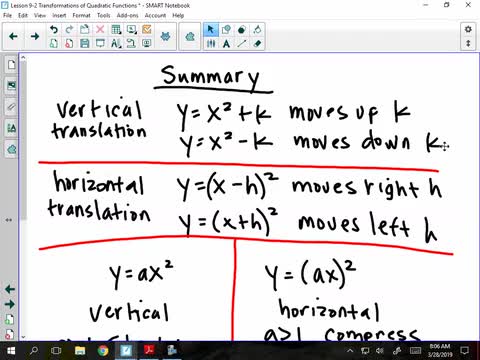 Lesson 9-2 Transformations of Quadratic Functions * - SMART Notebook
File Edit View Insert Format Tools Add-ons Account Help
Summary
vertical translation
y = x² + k moves up k
y = x² - k moves down k
horizontal translation
y = (x - h)² moves right h
y = (x + h)² moves left h
y = ax²
vertical
y = (ax)²
horizontal
a>1 compress
8:06 AM
3/28/2019